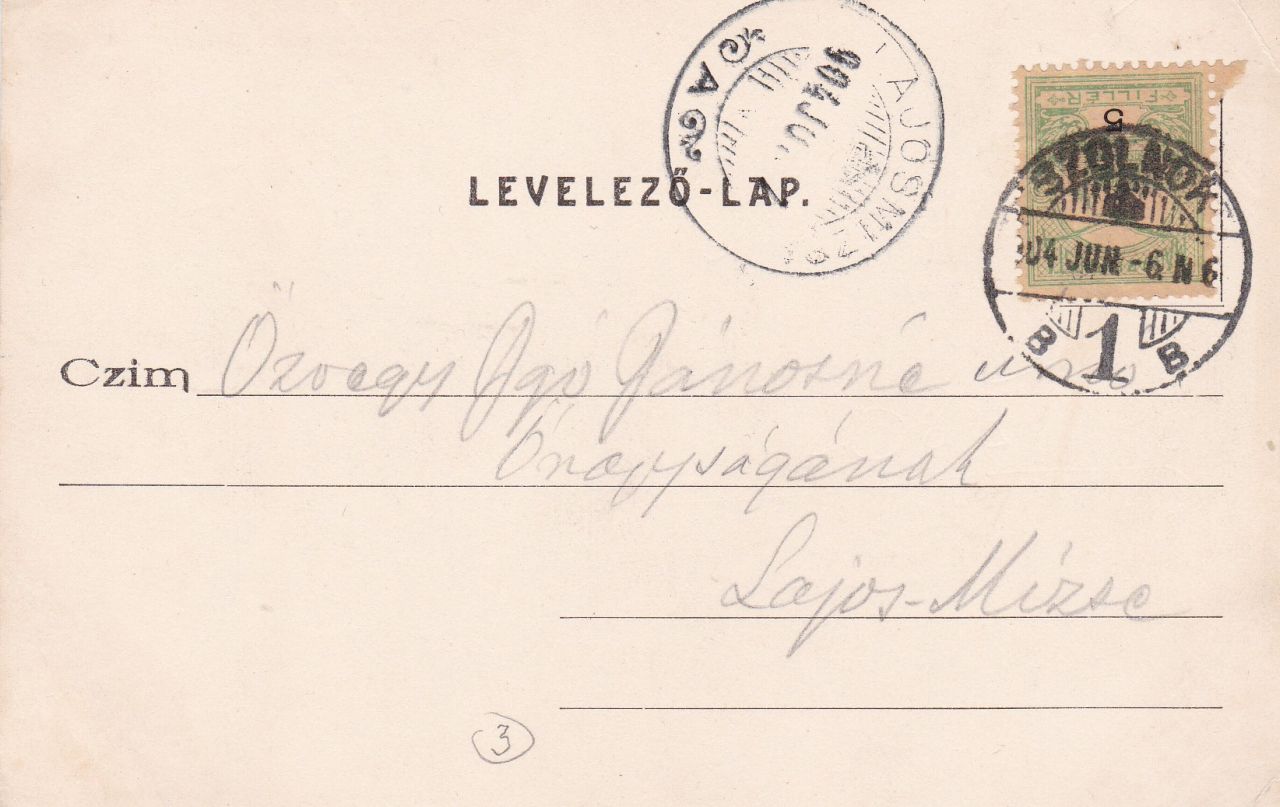 LEVELEZŐ-LAP.
LAJOSMIZSE
904 JU
A
FILLER
5
SZOLNOK
904 JUN -6 N 6
B 1 B
Czim Özvegy Agó Jánosné
Őnagyságának
Lajos-Mizse
3